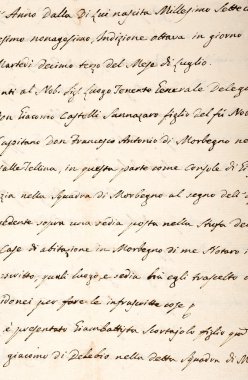 Anno dalla di Lui nascita Millesimo Sette c
esimo nonagesimo, Indizione ottava in giorno
Martedì decimo terzo del Mese di Luglio.
nti al Nob. Sig. Luogo Tenente Generale Delega
Don Giacomo Castelli Sannazaro figlio del fù Nob
Capitano don Francesco Antonio di Morbegno ne
Valle Tellina, in questa parte come Console di G
zia nella Squadra di Morbegno al segno del
edente sopra una sedia posta nella Stufa de
Case di abitazione in Morbegno di me Notaro i
scritto, quali luogo, e sedia hà egli trascelto c
idonei per fare le infrascritte cose
è presentato Giambattista Scortajolo figlio qm
giacomo di Delebio nella detta Squadra di M